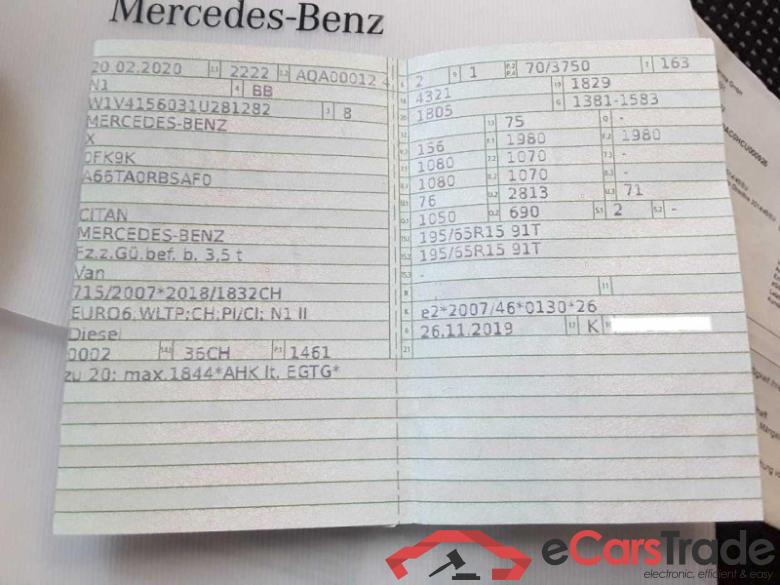 Mercedes-Benz
20.02.2020 2222 AQA00012 4
N1 BB
W1V4156031U281282 8
MERCEDES-BENZ
X
0FK9K
A66TA0RBSAF0
CITAN
MERCEDES-BENZ
Fz.z.Gü.bef. b. 3,5 t
Van
715/2007*2018/1832CH
EURO6;WLTP;CH;PI/CI; N1 II
Diesel
0002 36CH 1461
zu 20: max.1844*AHK lt. EGTG*
2 1 70/3750 163
4321 1829
1805 1381-1583
75 -
156 1980 1980
1080 1070 -
1080 1070 -
76 2813 71
1050 690 2 -
195/65R15 91T
195/65R15 91T
-
e2*2007/46*0130*26
26.11.2019 K
eCarsTrade
electronic, efficient & easy